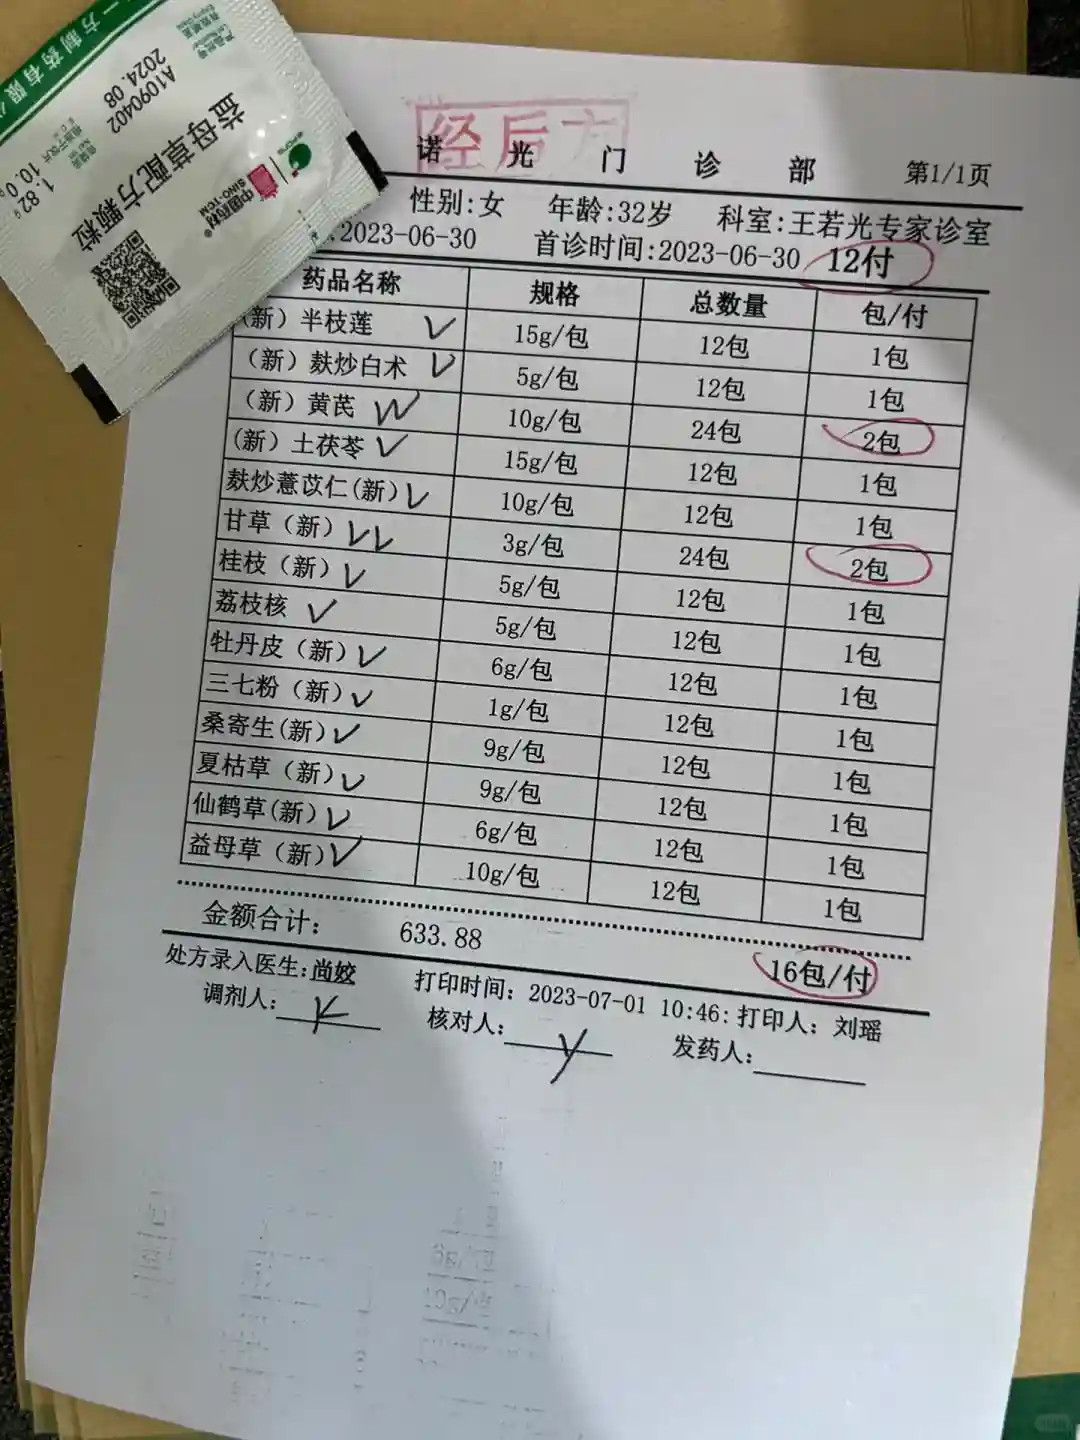 一方制药有限
产品批号
有效期至
A1090402
2024.08
益母草配方颗粒
中国中药®
SINO-TCM
1.82g
10.0g
经后方
诺光门诊部
第1/1页
性别:女 年龄:32岁 科室:王若光专家诊室
:2023-06-30 首诊时间:2023-06-30 12付
药品名称 规格 总数量 包/付
(新）半枝莲 15g/包 12包 1包
（新）麸炒白术 5g/包 12包 1包
（新）黄芪 10g/包 24包 2包
(新）土茯苓 15g/包 12包 1包
麸炒薏苡仁(新) 10g/包 12包 1包
甘草（新） 3g/包 24包 2包
桂枝（新） 5g/包 12包 1包
荔枝核 5g/包 12包 1包
牡丹皮（新） 6g/包 12包 1包
三七粉（新） 1g/包 12包 1包
桑寄生(新) 9g/包 12包 1包
夏枯草（新） 9g/包 12包 1包
仙鹤草(新) 6g/包 12包 1包
益母草（新） 10g/包 12包 1包
金额合计： 633.88
16包/付
处方录入医生:尚姣 打印时间：2023-07-01 10:46: 打印人：刘瑶
调剂人: 核对人: y 发药人: